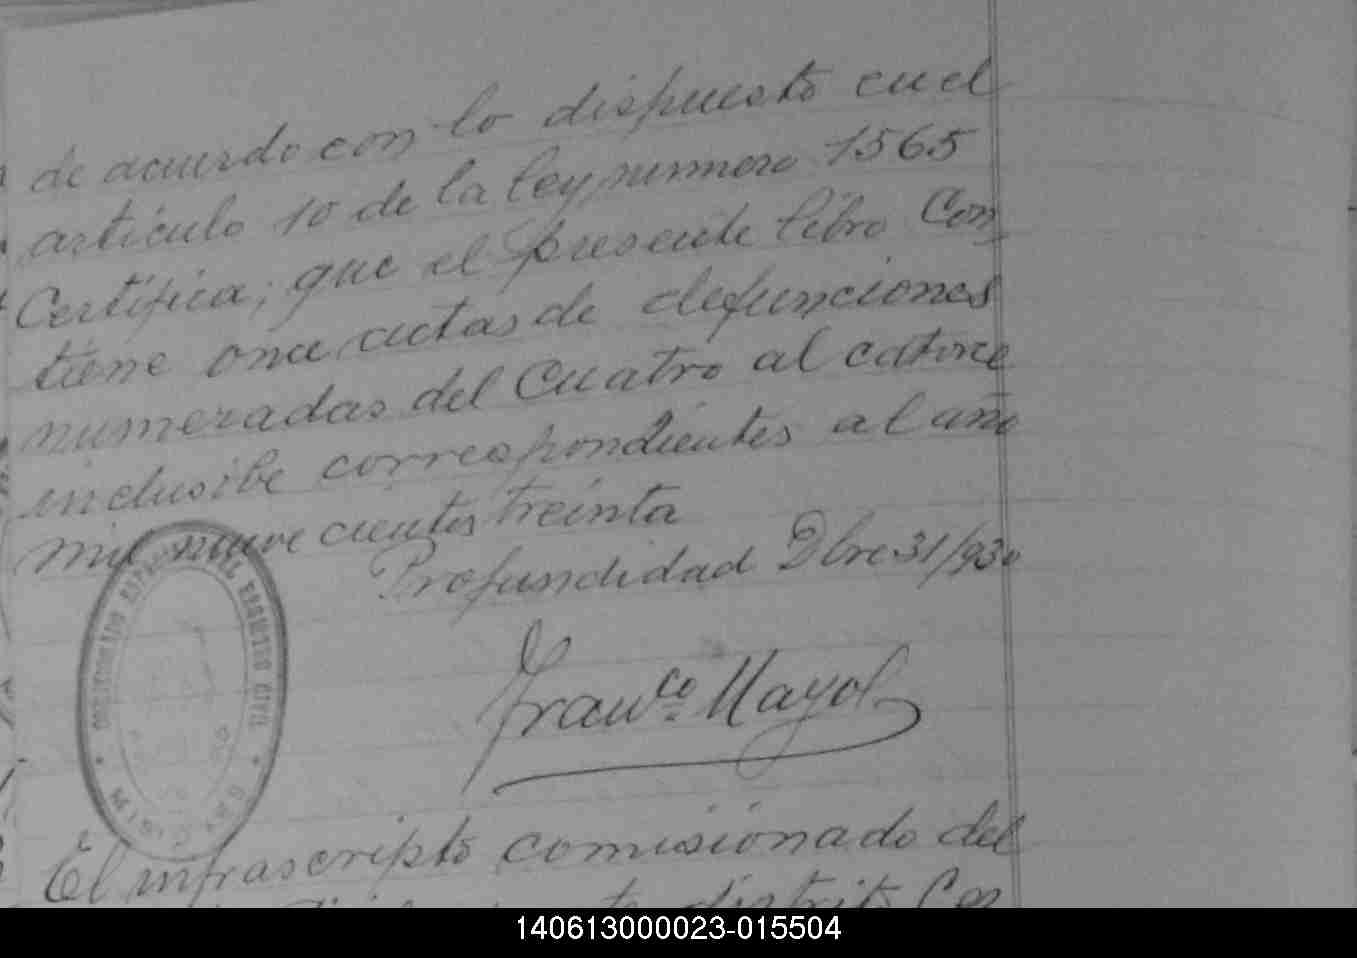 de acuerdo con lo dispuesto en el
artículo 10 de la ley numero 1565
Certifica; que el presente libro Con
tiene once actas de defunciones
numeradas del Cuatro al catorce
inclusibe correspondientes al año
mil nuve cientos treinta
Profundidad Dbre 31/930
Franco. Mayol
REGISTRO CIVIL
El infrascripto comisionado del
distrito Con
140613000023-015504